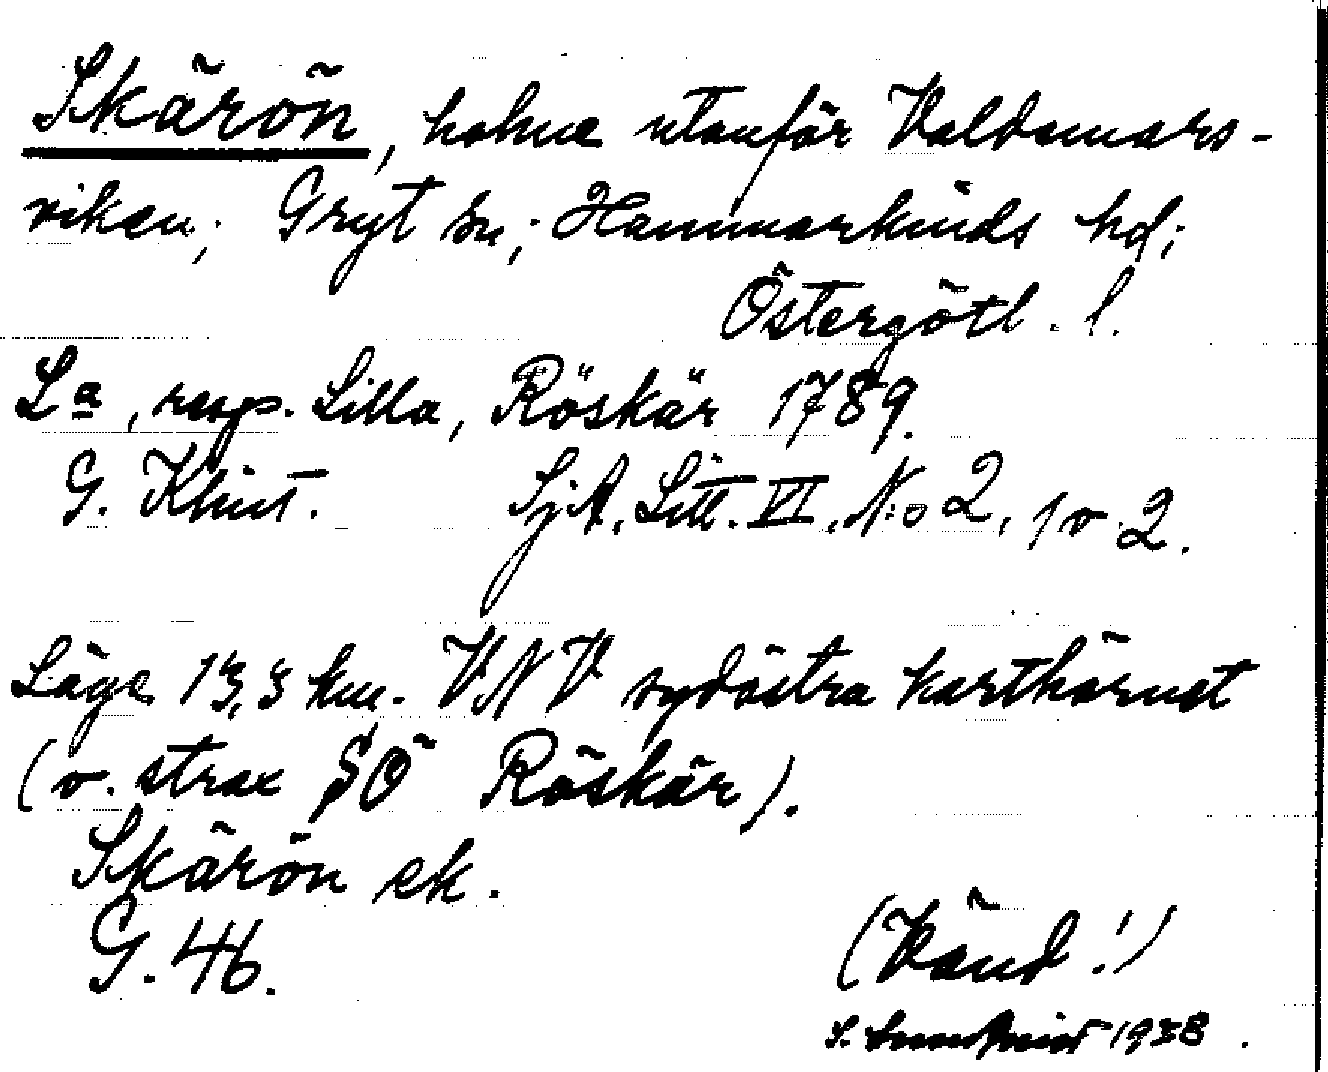 Skärön, holme utanför Valdemars-
viken; Gryt sn; Hammarkinds hd;
Östergötl. l.
La, resp. Lilla, Röskär 1789.
G. Klint. SjA, Litt. VI, N:o 2, 1 o 2.
Läge 13,3 km. VNV sydöstra karthörnet
(o. strax SÖ Röskär).
Skärön ek.
G. 46.
(Vänd!)
S. 1938.